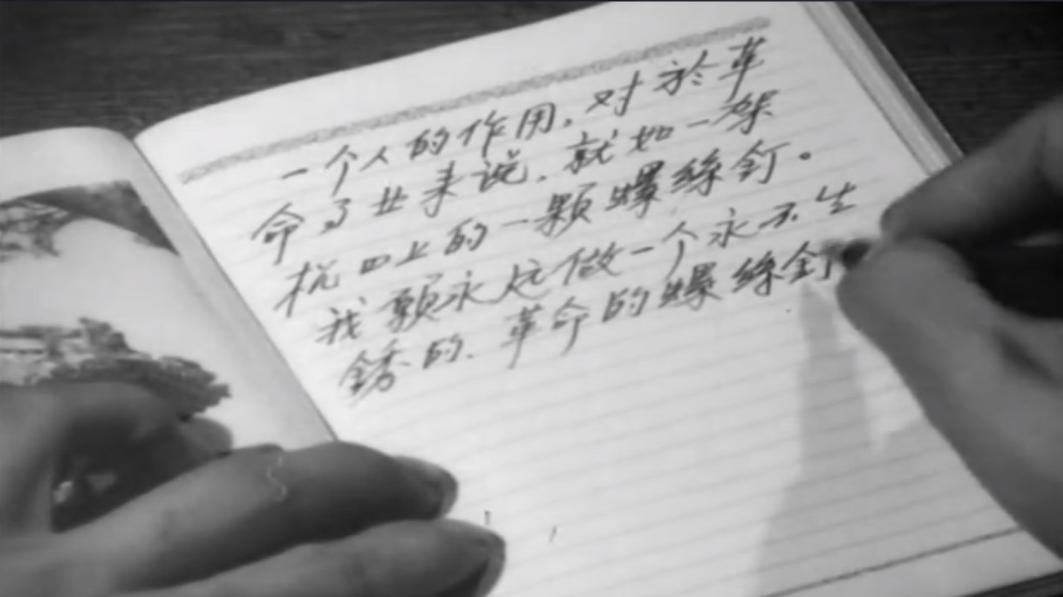 一个人的作用，对於革
命事业来说，就如一架
机器上的一颗螺絲釘。
我願永远做一个永不生
銹的、革命的螺絲釘